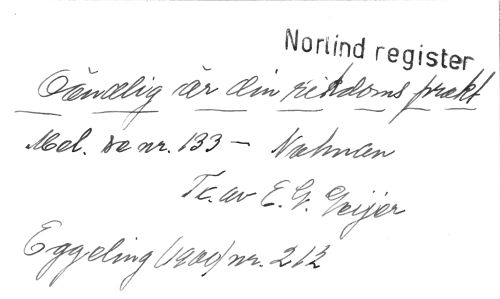 Norlind register
Oändlig är din rikdoms prakt
Mel. se nr. 133 - Nahman
Tr. av E. G. Geijer
Eggeling (1900) nr. 212